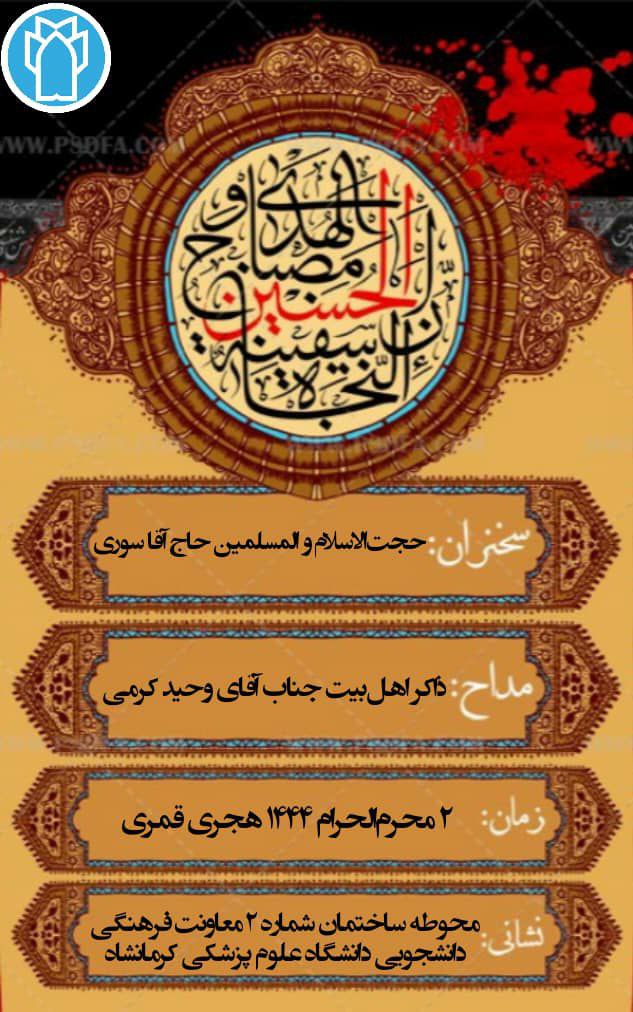 إن الحسين مصباح الهدى و سفينة النجاة
WWW.PSDFA.COM
سخنران: حجت‌الاسلام و المسلمین حاج آقا سوری
مداح: ذاکر اهل‌بیت جناب آقای وحید کرمی
زمان: ۲ محرم‌الحرام ۱۴۴۴ هجری قمری
نشانی: محوطه ساختمان شماره ۲ معاونت فرهنگی
دانشجویی دانشگاه علوم پزشکی کرمانشاه